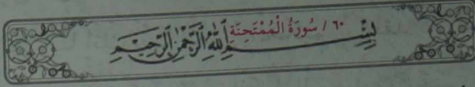 ٦٠ / سُورَةُ الْمُمْتَحِنَةِ
بِسْمِ اللَّهِ الرَّحْمَٰنِ الرَّحِيمِ